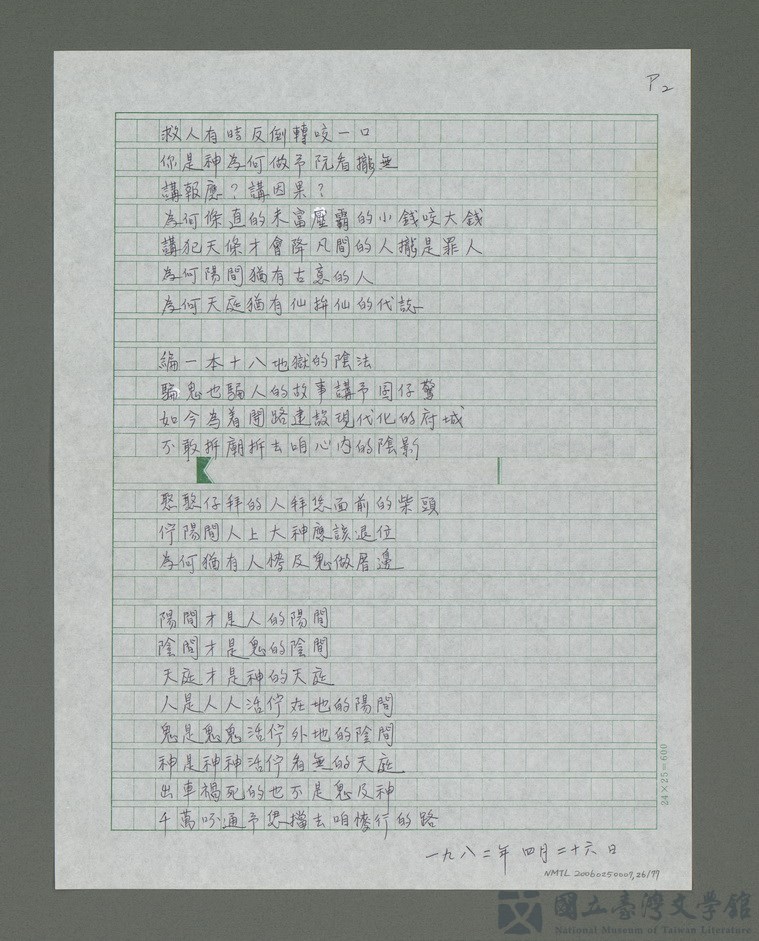 P2
救人有時反倒轉咬一口
你是神為何做予阮看攏無
講報應？講因果？
為何條直的未富壓霸的小錢咬大錢
講犯天條才會降凡間的人攏是罪人
為何陽間猶有古意的人
為何天庭猶有仙拚仙的代誌
編一本十八地獄的陰法
騙鬼也騙人的故事講予囝仔驚
如今為着開路建設現代化的府城
不敢拆廟拆去咱心內的陰影
憨憨仔拜的人拜您面前的柴頭
佇陽間人上大神應該退位
為何猶有人愫及鬼做厝邊
陽間才是人的陽間
陰間才是鬼的陰間
天庭才是神的天庭
人是人人活佇在地的陽間
鬼是鬼鬼活佇外地的陰間
神是神神活佇看無的天庭
出車禍死的也不是鬼及神
千萬呣通予您擋去咱愫行的路
一九八二年四月二十六日
24×25=600
NMTL 20060250007,26/77
國立臺灣文學館
National Museum of Taiwan Literature